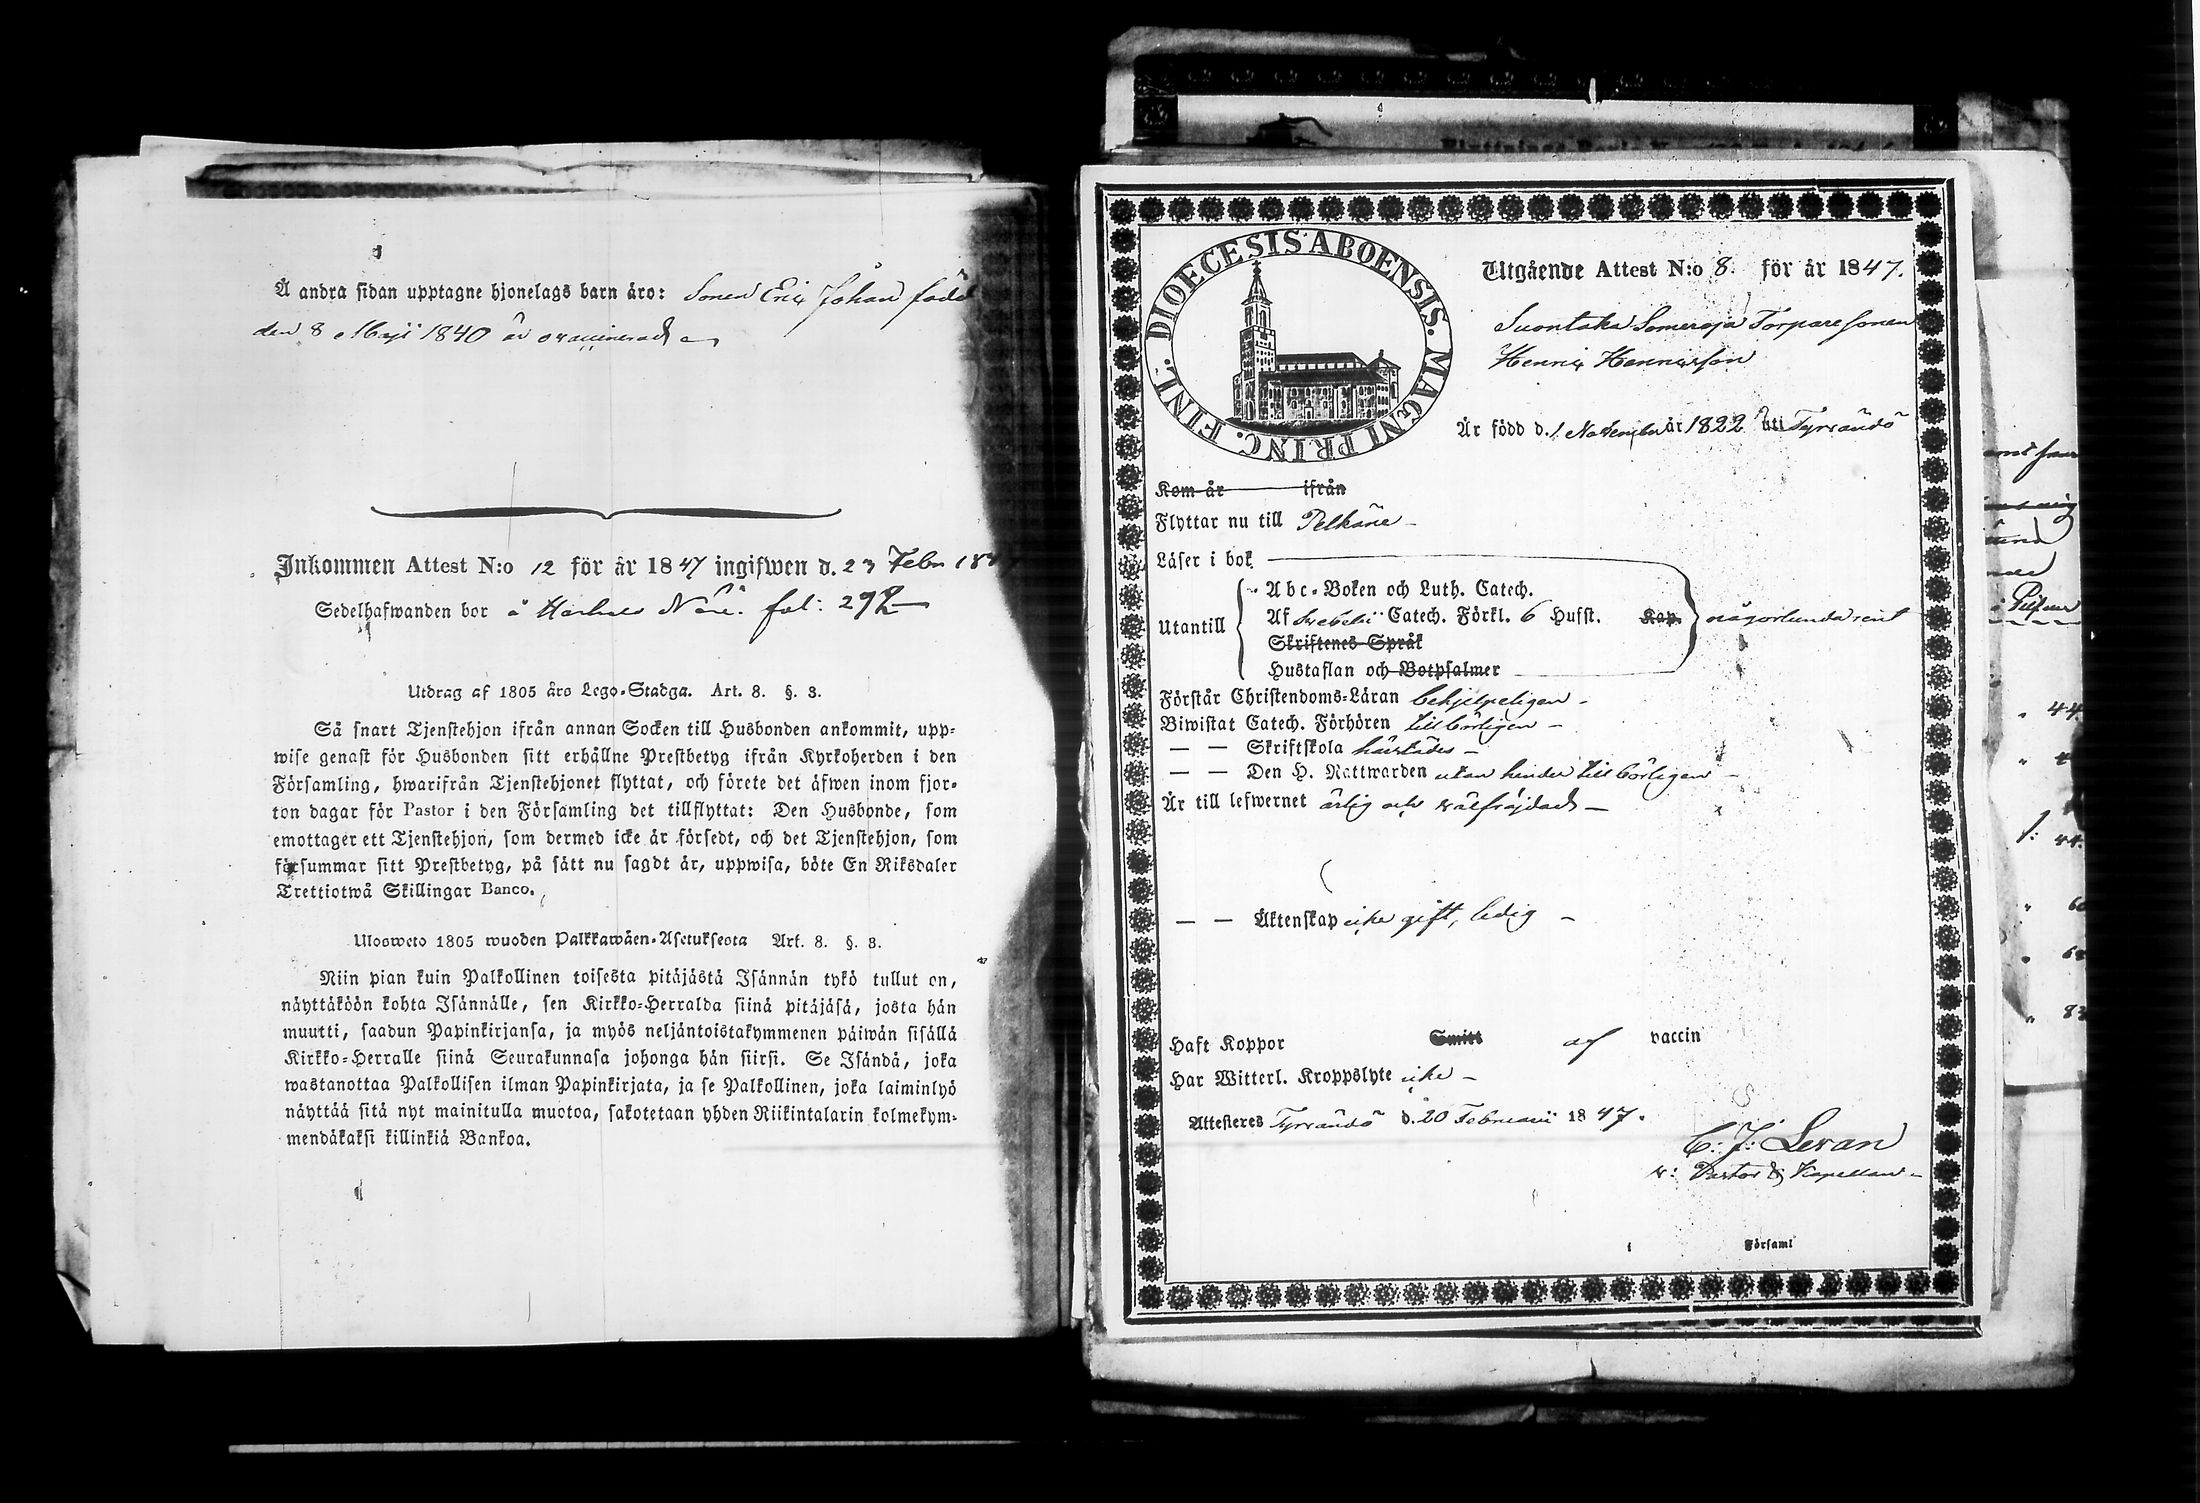 Å andra sidan upptagne hjonelags barn äro: Sonen Eric Johan född
den 8 Maji 1840 är ovaccinerad
Inkommen Attest N:o 12 för år 1847 ingifwen d. 23 Febr 184
Sedelhafwanden bor å fol: 292
Utdrag af 1805 års Lego-Stadga. Art. 8. §. 3.
Så snart Tjenstehjon ifrån annan Socken till Husbonden ankommit, upp-
wise genast för Husbonden sitt erhållne Prestbetyg ifrån Kyrkoherden i den
Församling, hwarifrån Tjenstehjonet flyttat, och förete det äfwen inom fjor-
ton dagar för Pastor i den Församling det tillflyttat: Den Husbonde, som
emottager ett Tjenstehjon, som dermed icke är försedt, och det Tjenstehjon, som
försummar sitt Prestbetyg, på sätt nu sagdt är, uppwisa, böte En Riksdaler
Trettiotwå Skillingar Banco.
Ulosweto 1805 wuoden Palkkawäen-Asetuksesta Art. 8. §. 3.
Niin pian kuin Palkollinen toisesta pitäjästä Isännän tykö tullut on,
näyttäköön kohta Isännälle, sen Kirkko-Herralda siinä pitäjäsä, josta hän
muutti, saadun Papinkirjansa, ja myös neljäntoistakymmenen päiwän sisällä
Kirkko-Herralle siinä Seurakunnasa johonga hän siirsi. Se Isändä, joka
wastanottaa Palkollisen ilman Papinkirjata, ja se Palkollinen, joka laiminlyö
näyttää sitä nyt mainitulla muotoa, sakotetaan yhden Riikintalarin kolmekym-
mendäkaksi killinkiä Bankoa.
DIOECESIS ABOENSIS. MAGNI PRINC. FINL.
Utgående Attest N:o 8. för år 1847.
Suontaka Someroja Torparesonen
Henric Henricsson
Är född d. 1 November år 1822 uti Tyrvändö
Kom år ifrån
Flyttar nu till Pelkäne
Läser i bok
Utantill
Abc-Boken och Luth. Catech.
Af Svebelii Catech. Förkl. 6 Hufst. Kap. någorlunda rent
Skriftenes Språk
Hustaflan och Botpsalmer
Förstår Christendoms-Läran behjelpeligen
Biwistat Catech. Förhören tillbörligen
— — Skriftskola härstädes
— — Den H. Nattwarden utan hinder tillbörligen
Är till lefwernet ärlig och välfräjdad
— — Äktenskap icke gift, ledig
Haft Koppor Smitt af vaccin
Har Witterl. Kroppslyte icke
Attesteres Tyrvändö d. 20 Februarii 1847.
C: J: Levan
v: Pastor & Kapellan
Församl